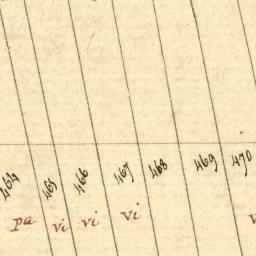 464 465 466 467 468 469 470
pa vi vi vi